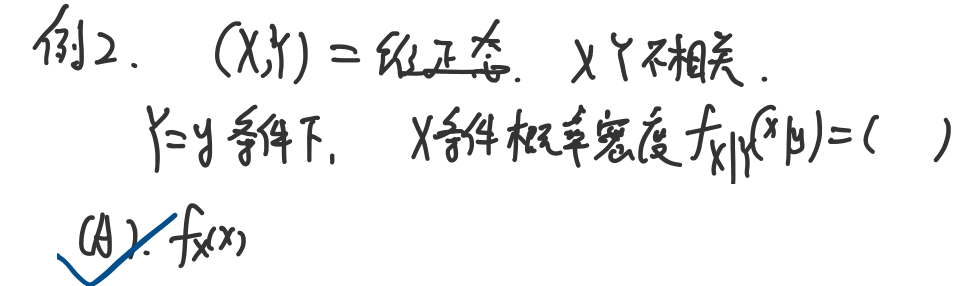 例2. (X,Y) = 维正态. X Y不相关.
Y=y 条件下, X条件概率密度 f_{X|Y}(x|y)=( )
(A). f_X(x)